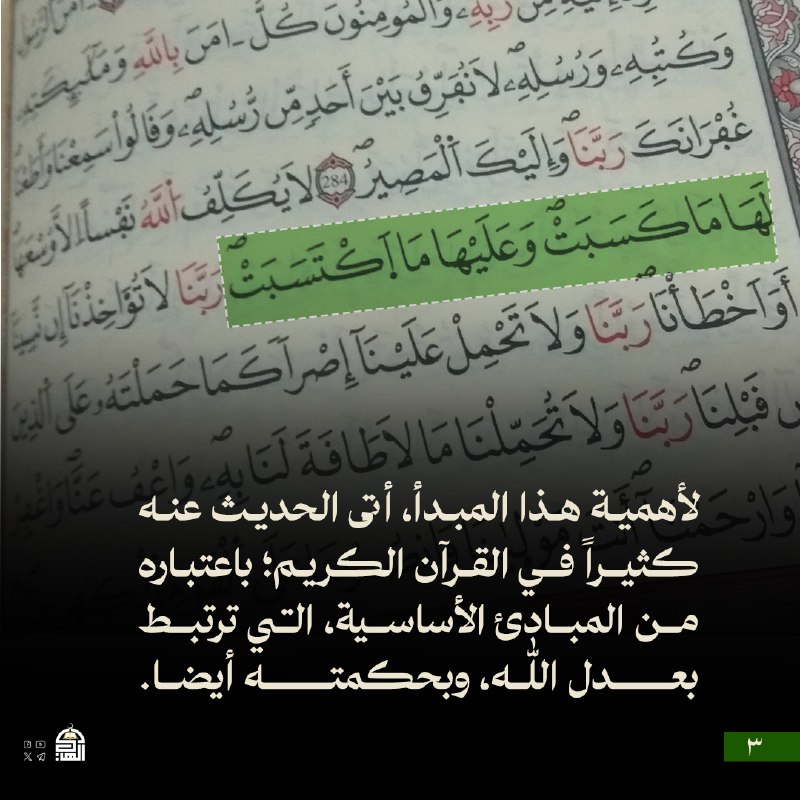 رَبِّهِۦ وَالْمُومِنُونَ كُلٌّ ـ امَنَ بِاللَّهِ وَمَلَٰٓئِكَتِهِۦ
وَكُتُبِهِۦ وَرُسُلِهِۦ لَا نُفَرِّقُ بَيْنَ أَحَدٍ مِّن رُّسُلِهِۦ وَقَالُواْ سَمِعْنَا وَأَطَعْنَا
غُفْرَانَكَ رَبَّنَا وَإِلَيْكَ ٱلْمَصِيرُ 284 لَا يُكَلِّفُ اللَّهُ نَفْساً اِلَّا وُسْعَهَا
لَهَا مَا كَسَبَتْ وَعَلَيْهَا مَا اَكْتَسَبَتْ رَبَّنَا لَا تُؤَاخِذْنَا إِن نَّسِينَا
أَوَ اَخْطَأْنَا رَبَّنَا وَلَا تَحْمِلْ عَلَيْنَا إِصْراً كَمَا حَمَلْتَهُۥ عَلَى الَّذِينَ
مِن قَبْلِنَا رَبَّنَا وَلَا تُحَمِّلْنَا مَا لَا طَاقَةَ لَنَا بِهِۦ وَاعْفُ عَنَّا وَاغْفِرْ
وَارْحَمْنَا أَنتَ مَوْلَىٰنَا
لأهمية هذا المبدأ، أتى الحديث عنه
كثيراً في القرآن الكريم؛ باعتباره
من المبادئ الأساسية، التي ترتبط
بعدل الله، وبحكمته أيضا.
٣